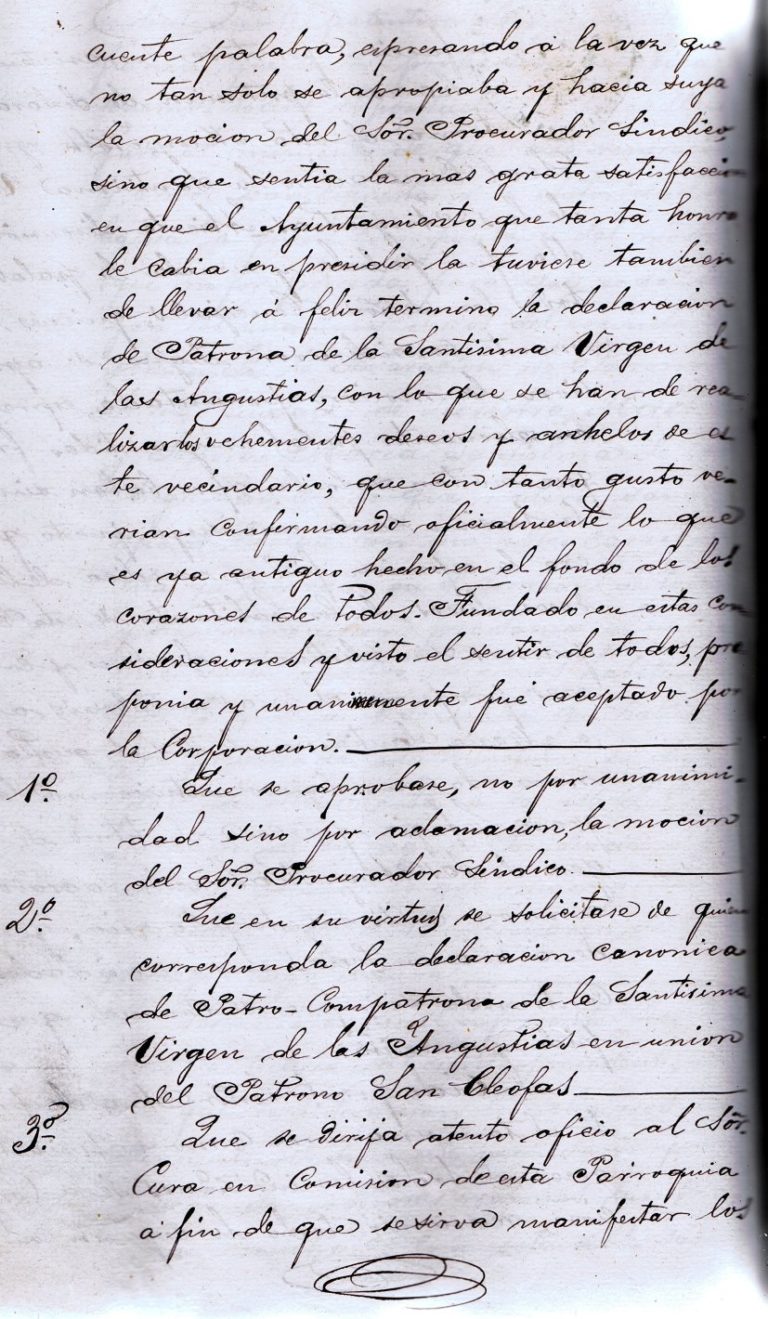 cuente palabra, espresando á la vez que
no tan solo se apropiaba y hacia suya
la mocion del Sor. Procurador Sindico,
sino que sentia la mas grata satisfaccion
en que el Ayuntamiento que tanta honra
le cabia en presidir la tuviese tambien
de llevar á feliz termino la declaracion
de Patrona de la Santisima Virgen de
las Angustias, con lo que se han de rea-
lizar los vehementes deseos y anhelos de es
te vecindario, que con tanto gusto ve-
rian confirmando oficialmente lo que
es ya antiguo hecho en el fondo de los
corazones de todos. Fundado en estas con
sideraciones y visto el sentir de todos, pro
ponia y unanimemente fué aceptado por
la Corporacion.
1º. Que se aprobase, no por unanimi-
dad sino por aclamacion, la mocion
del Sor. Procurador Sindico.
2º. Que en su virtud se solicitase de quien
corresponda la declaracion canonica
de Patro-Compatrona de la Santisima
Virgen de las Angustias en union
del Patrono San Cleofas
3º. Que se dirija atento oficio al Sor.
Cura en Comision de esta Parroquia
á fin de que se sirva manifestar los